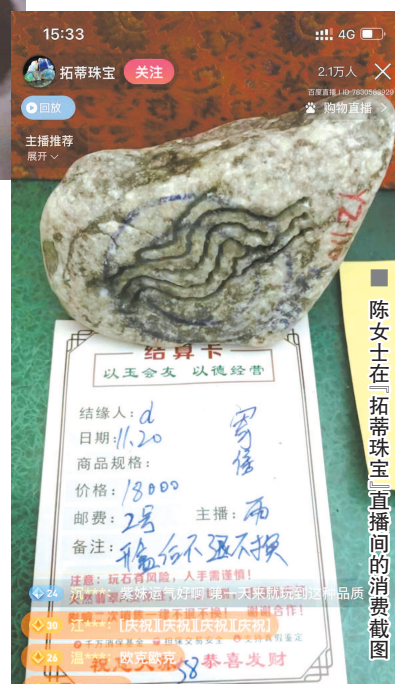 15:33
4G
拓蒂珠宝
关注
2.1万人
百度直播 | ID 7830568929
回放
购物直播
主播推荐
展开
YZ-110
结算卡
以玉会友 以德经营
结缘人：d
日期：11.20
商品规格：
价格：18000
邮费：2号
主播：雨
备注：开窗后不退不换
注意：玩石有风险，入手需谨慎！
24 沉***：紫妹运气好啊 第一天来就玩到这种品质
30 江***：[庆祝][庆祝][庆祝][庆祝]
26 温***：欧克欧克
38
恭喜发财
陈女士在『拓蒂珠宝』直播间的消费截图